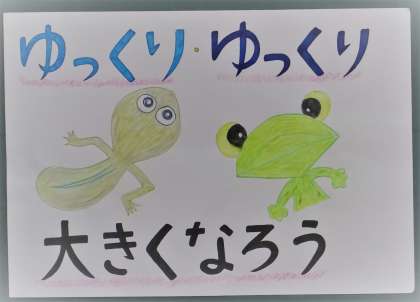 ゆっくり・ゆっくり
大きくなろう